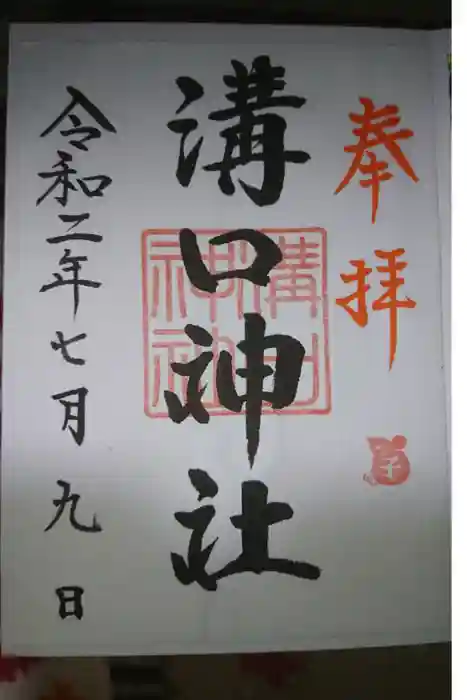 奉拝
子
溝口神社
溝口
神社
令和二年七月九日